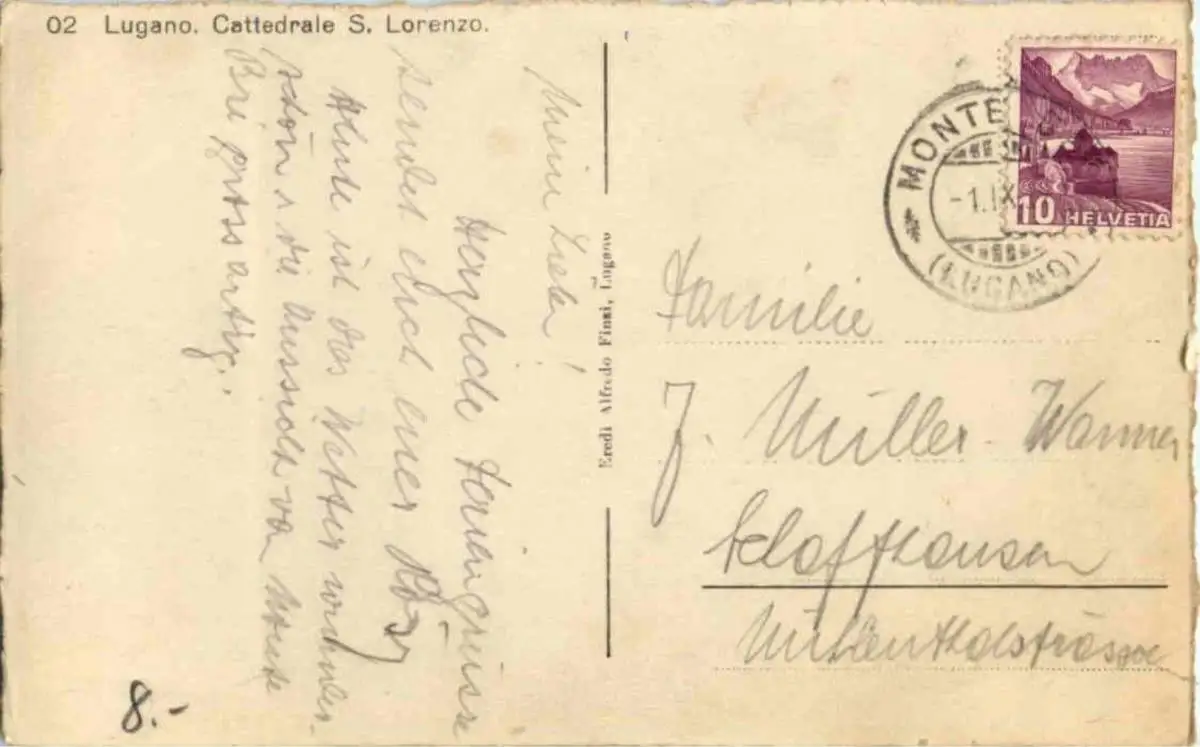 02 Lugano. Cattedrale S. Lorenzo.
Meine Lieben!
Herzliche Feriengrüsse
sendet euch euer Rösy
Heute ist das Wetter wunder-
schön u die Aussicht von Monte
Bré grossartig.
Eredi Alfredo Finzi, Lugano
MONTE
-1.IX
(LUGANO)
10 HELVETIA
Familie
J. Müller-Wanner
Schaffhausen
Mühlenthalstrasse
8.-